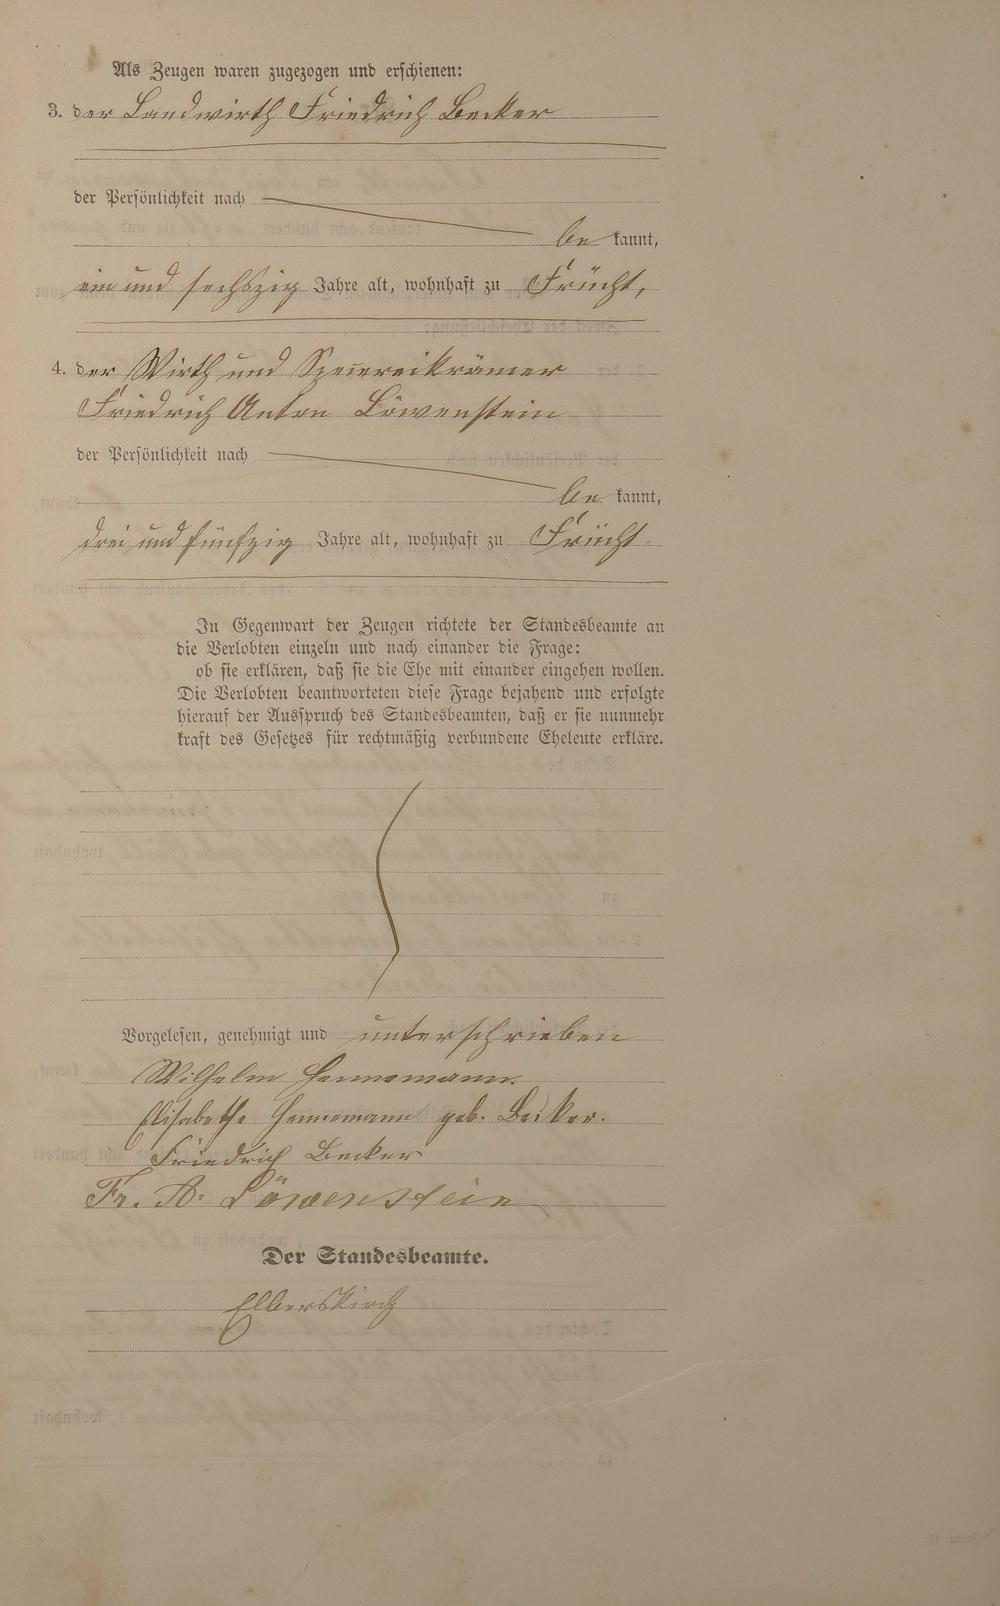 Als Zeugen waren zugezogen und erschienen:
3. der Landwirth Friedrich Becker
der Persönlichkeit nach
be kannt,
ein und sechszig Jahre alt, wohnhaft zu Frücht,
4. der Wirth und Spezereikrämer
Friedrich Anton Löwenstein
der Persönlichkeit nach
be kannt,
drei und fünfzig Jahre alt, wohnhaft zu Frücht.
In Gegenwart der Zeugen richtete der Standesbeamte an
die Verlobten einzeln und nach einander die Frage:
ob sie erklären, daß sie die Ehe mit einander eingehen wollen.
Die Verlobten beantworteten diese Frage bejahend und erfolgte
hierauf der Ausspruch des Standesbeamten, daß er sie nunmehr
kraft des Gesetzes für rechtmäßig verbundene Eheleute erkläre.
Vorgelesen, genehmigt und unterschrieben
Wilhelm Hennemann.
Elisabethe Hennemann geb. Becker.
Friedrich Becker
Fr. A. Löwenstein
Der Standesbeamte.
Elberskirch